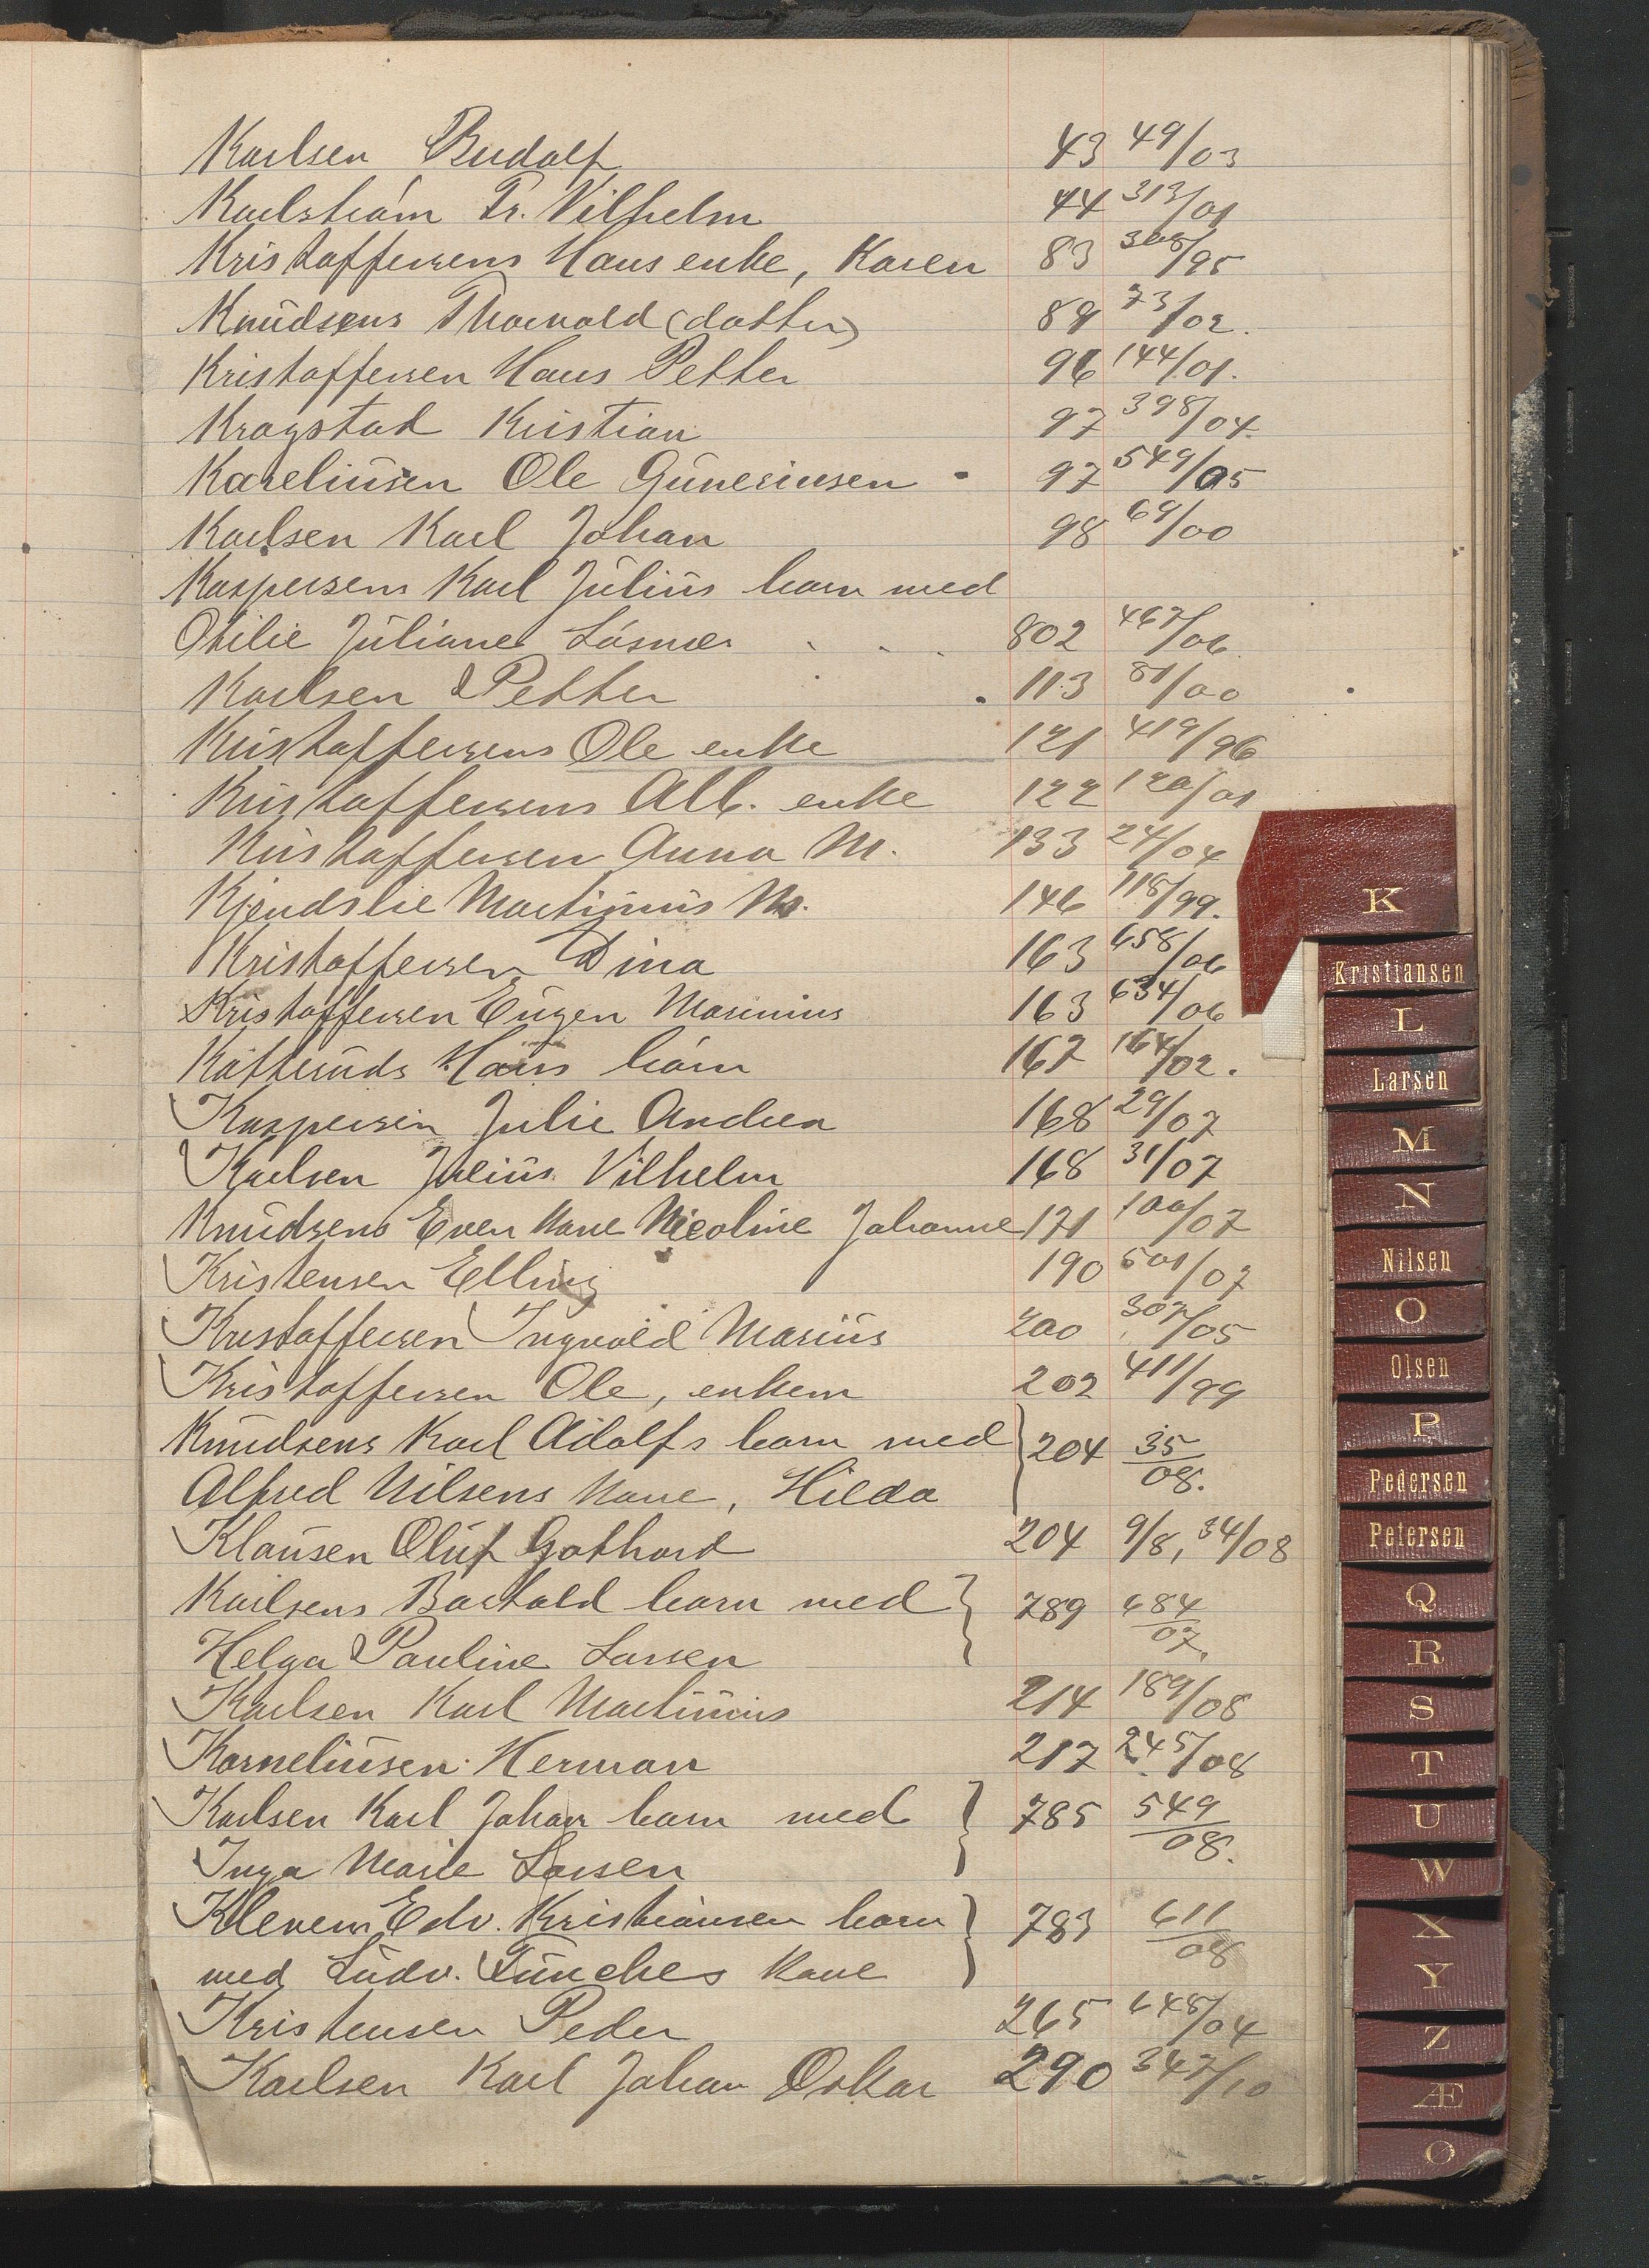 Karlsen Rudolf 43 49/03
Karlstrøm Fr. Vilhelm 44 313/01
Kristoffersens Hans enke, Karen 83 308/95
Knudsens Thorvald (datter) 89 73/02.
Kristoffersen Hans Petter 96 144/01.
Krogstad Kristian 97 398/04.
Kareliusen Ole Guneriusen 97 549/05
Karlsen Karl Johan 98 69/00
Kaspersens Karl Julius barn med
Otilie Juliane Løsmer 802 467/06
Karlsen Petter 113 81/00
Kristoffersens Ole enke 121 419/96
Kristoffersens Alb. enke 122 120/01
Kristoffersen Anna M. 133 24/04
Kjendslie Martinius M. 146 118/99.
Kristoffersen Dina 163 658/06
Kristoffersen Eugen Marinius 163 634/06
KATTeruds Hans barn 167 164/02.
Kaspersen Julie Andrea 168 29/07
Karlsen Julius Vilhelm 168 31/07
Knudsens Even kone Nicoline Johanne 171 100/07
Kristensen Elling 190 501/07
Kristoffersen Ingvald Marius 200 307/05
Kristoffersen Ole, enkem 202 411/99
Knudsens Karl Adolfs barn med } 204 35/08.
Alfred Nilsens kone, Hilda
Klausen Oluf Gothard 204 9/8, 34/08
Karlsens Bartold barn med } 789 684/07.
Helga Pauline Larsen
Karlsen Karl Martinius 214 189/08
Korneliusen Herman 217 245/08
Karlsen Karl Johan barn med } 785 549/08.
Inga Marie Larsen
Klevens Edv. Kristiansen barn } 783 611/08
med Ludv. Tünches kone
Kristensen Peder 265 648/04
Karlsen Karl Johan Oskar 290 347/10
K
Kristiansen
L
Larsen
M
N
Nilsen
O
Olsen
P
Pedersen
Petersen
Q
R
S
T
U
W
X
Y
Z
Æ
O